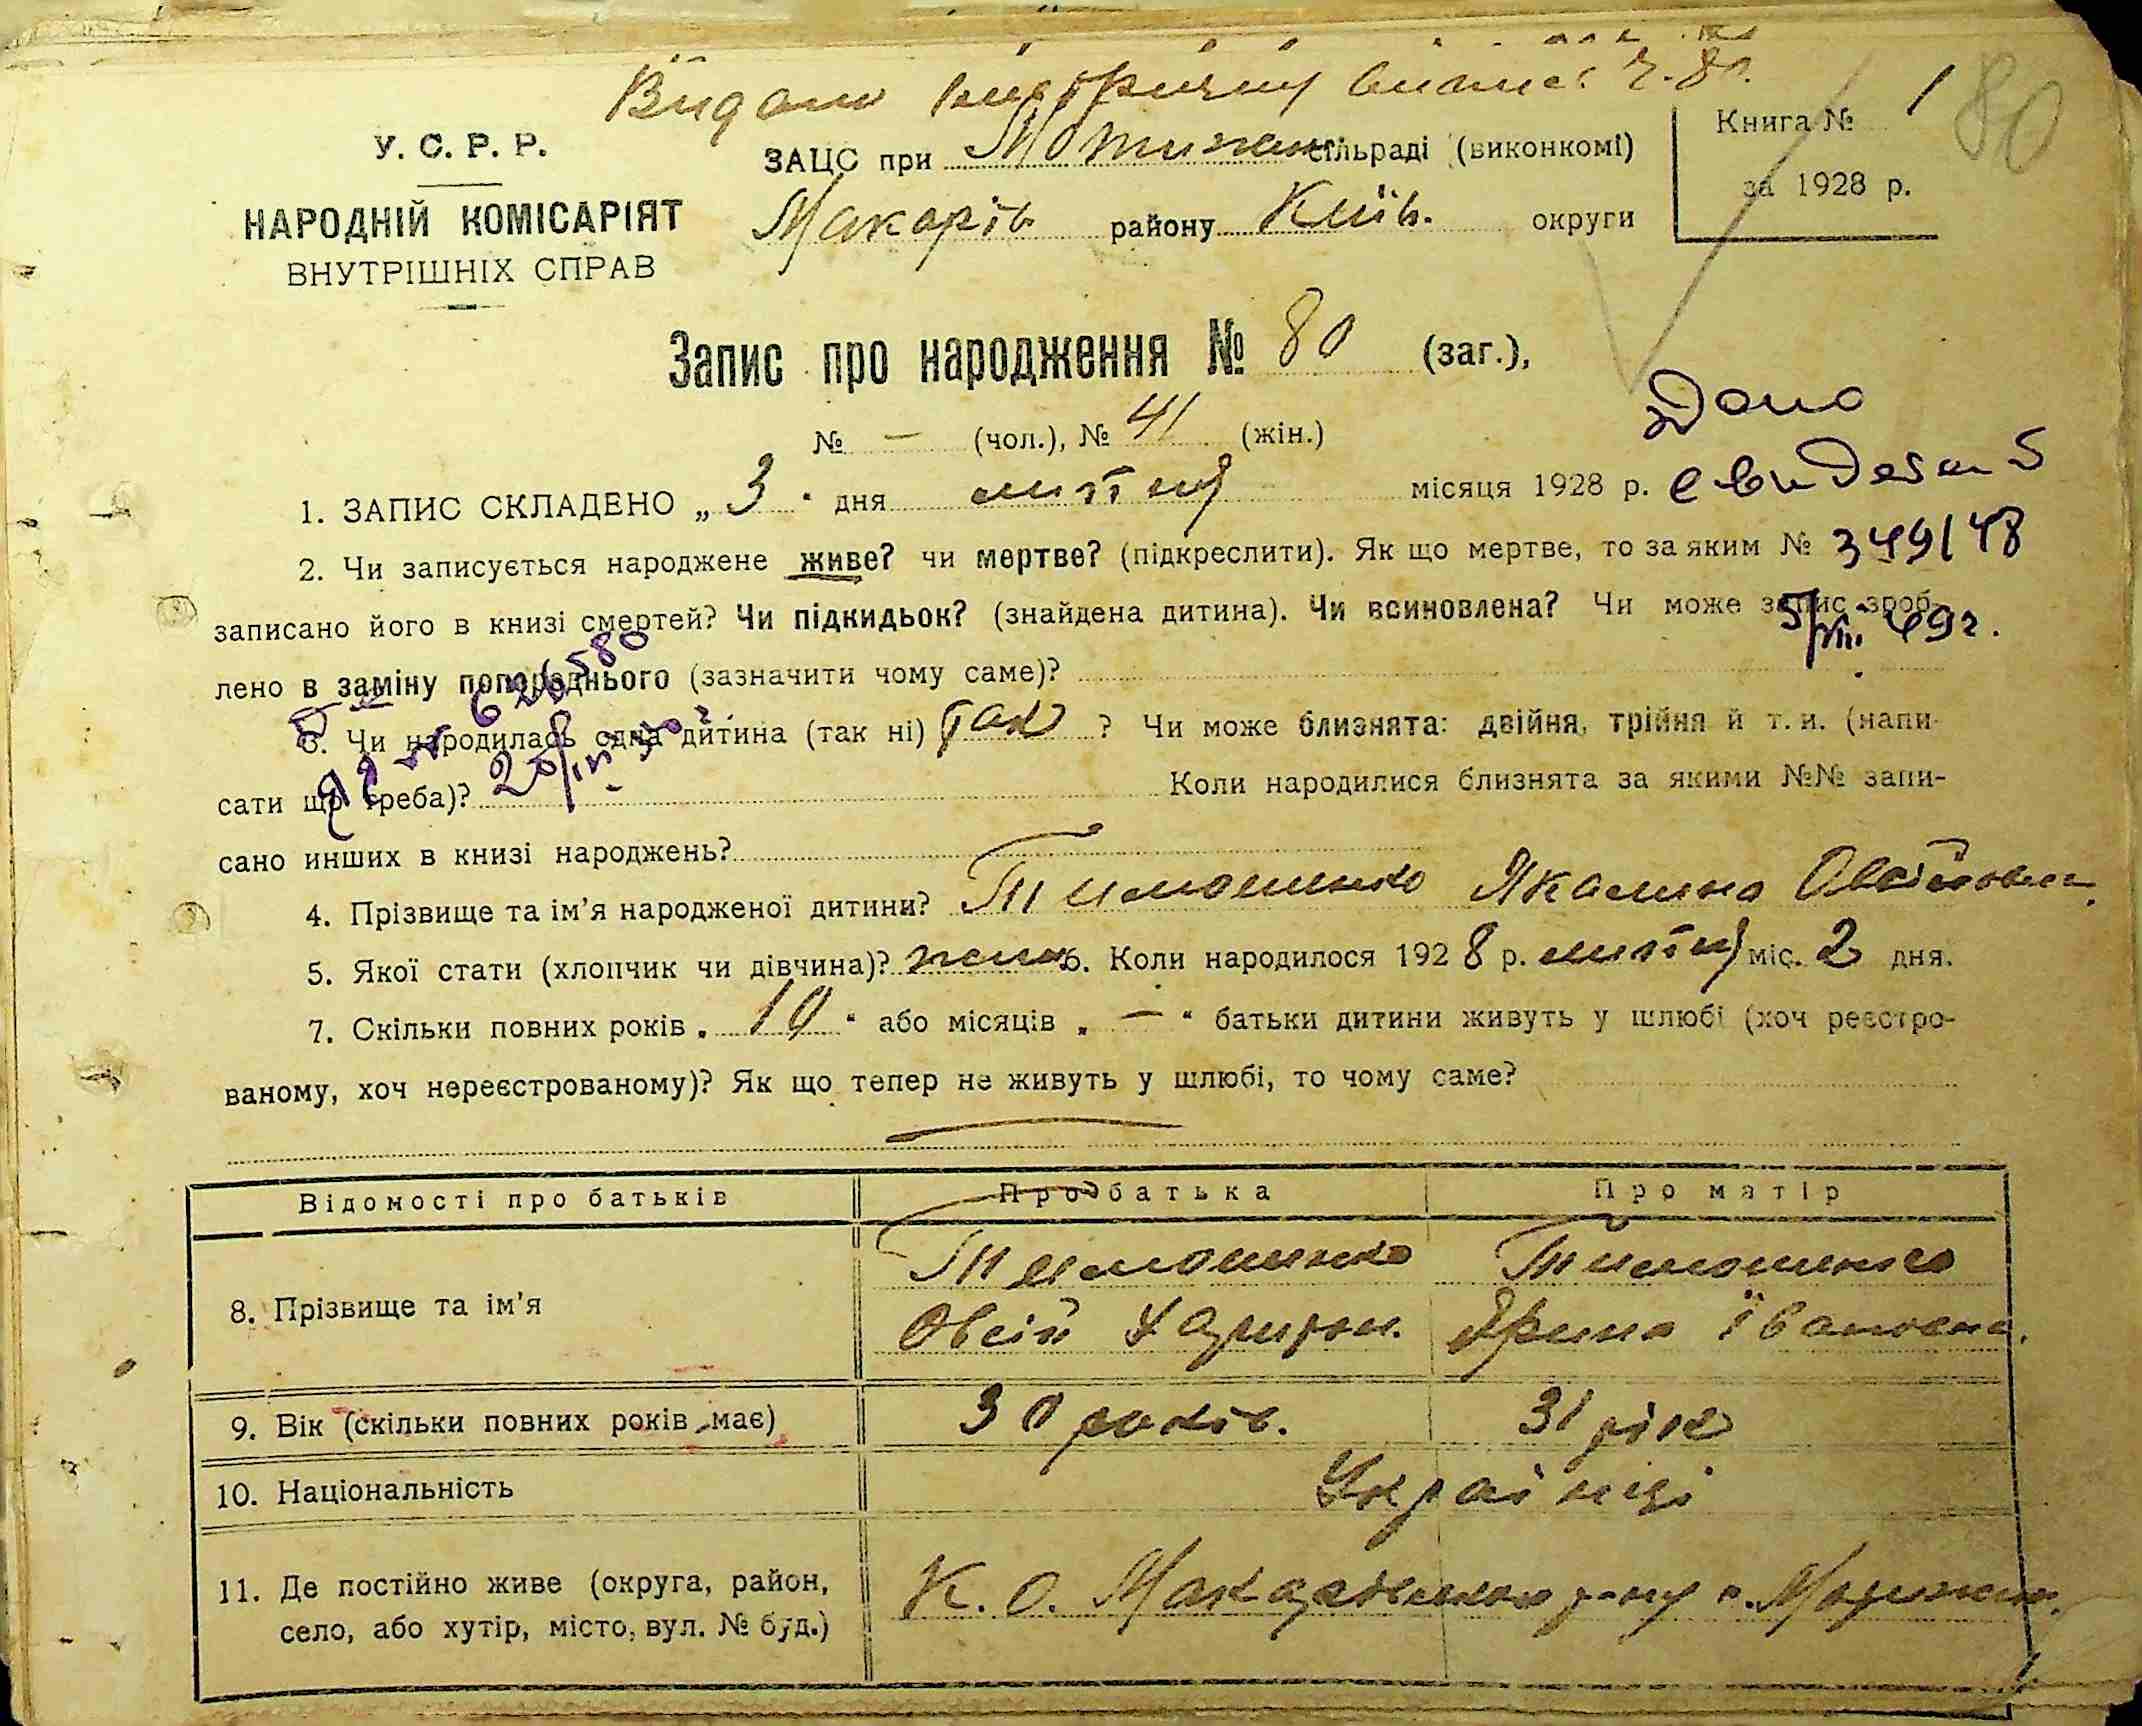 Видано вторичну выпис. Ч. 80.
У. С. Р. Р.
НАРОДНІЙ КОМІСАРІЯТ
ВНУТРІШНІХ СПРАВ
ЗАЦС при Мотижин сільраді (виконкомі)
Макарів району Київ. округи
Книга № 1
за 1928 р.
80
Запис про народження № 80 (заг.),
№ — (чол.), № 41 (жін.)
Дано
1. ЗАПИС СКЛАДЕНО „ 3 " дня липня місяця 1928 р.
2. Чи записується народжене живе? чи мертве? (підкреслити). Як що мертве, то за яким №
349/48
записано його в книзі смертей? Чи підкидьок? (знайдена дитина). Чи всиновлена? Чи може запис зроб-
5/VIII 49г.
лено в заміну попереднього (зазначити чому саме)?
3. Чи народилась одна дитина (так ні) так ? Чи може близнята: двійня, трійня й т. и. (напи-
сати що треба)? Коли народилися близнята за якими №№ запи-
сано инших в книзі народжень?
4. Прізвище та ім'я народженої дитини? Тимошенко Якилина Овсіївна.
5. Якої стати (хлопчик чи дівчина)? жін. 6. Коли народилося 1928 р. липня міс. 2 дня.
7. Скільки повних років „ 10 " або місяців „ — " батьки дитини живуть у шлюбі (хоч реєстро-
ваному, хоч нереєстрованому)? Як що тепер не живуть у шлюбі, то чому саме?
Відомості про батьків Про батька Про матір
8. Прізвище та ім'я
Тимошенко Тимошенко
Овсій Ярина Івановна.
9. Вік (скільки повних років має) 30 років. 31 рік
10. Національність Українці
11. Де постійно живе (округа, район,
село, або хутір, місто, вул. № буд.)
К. О. Макарівського р-ну с. Мотижин.